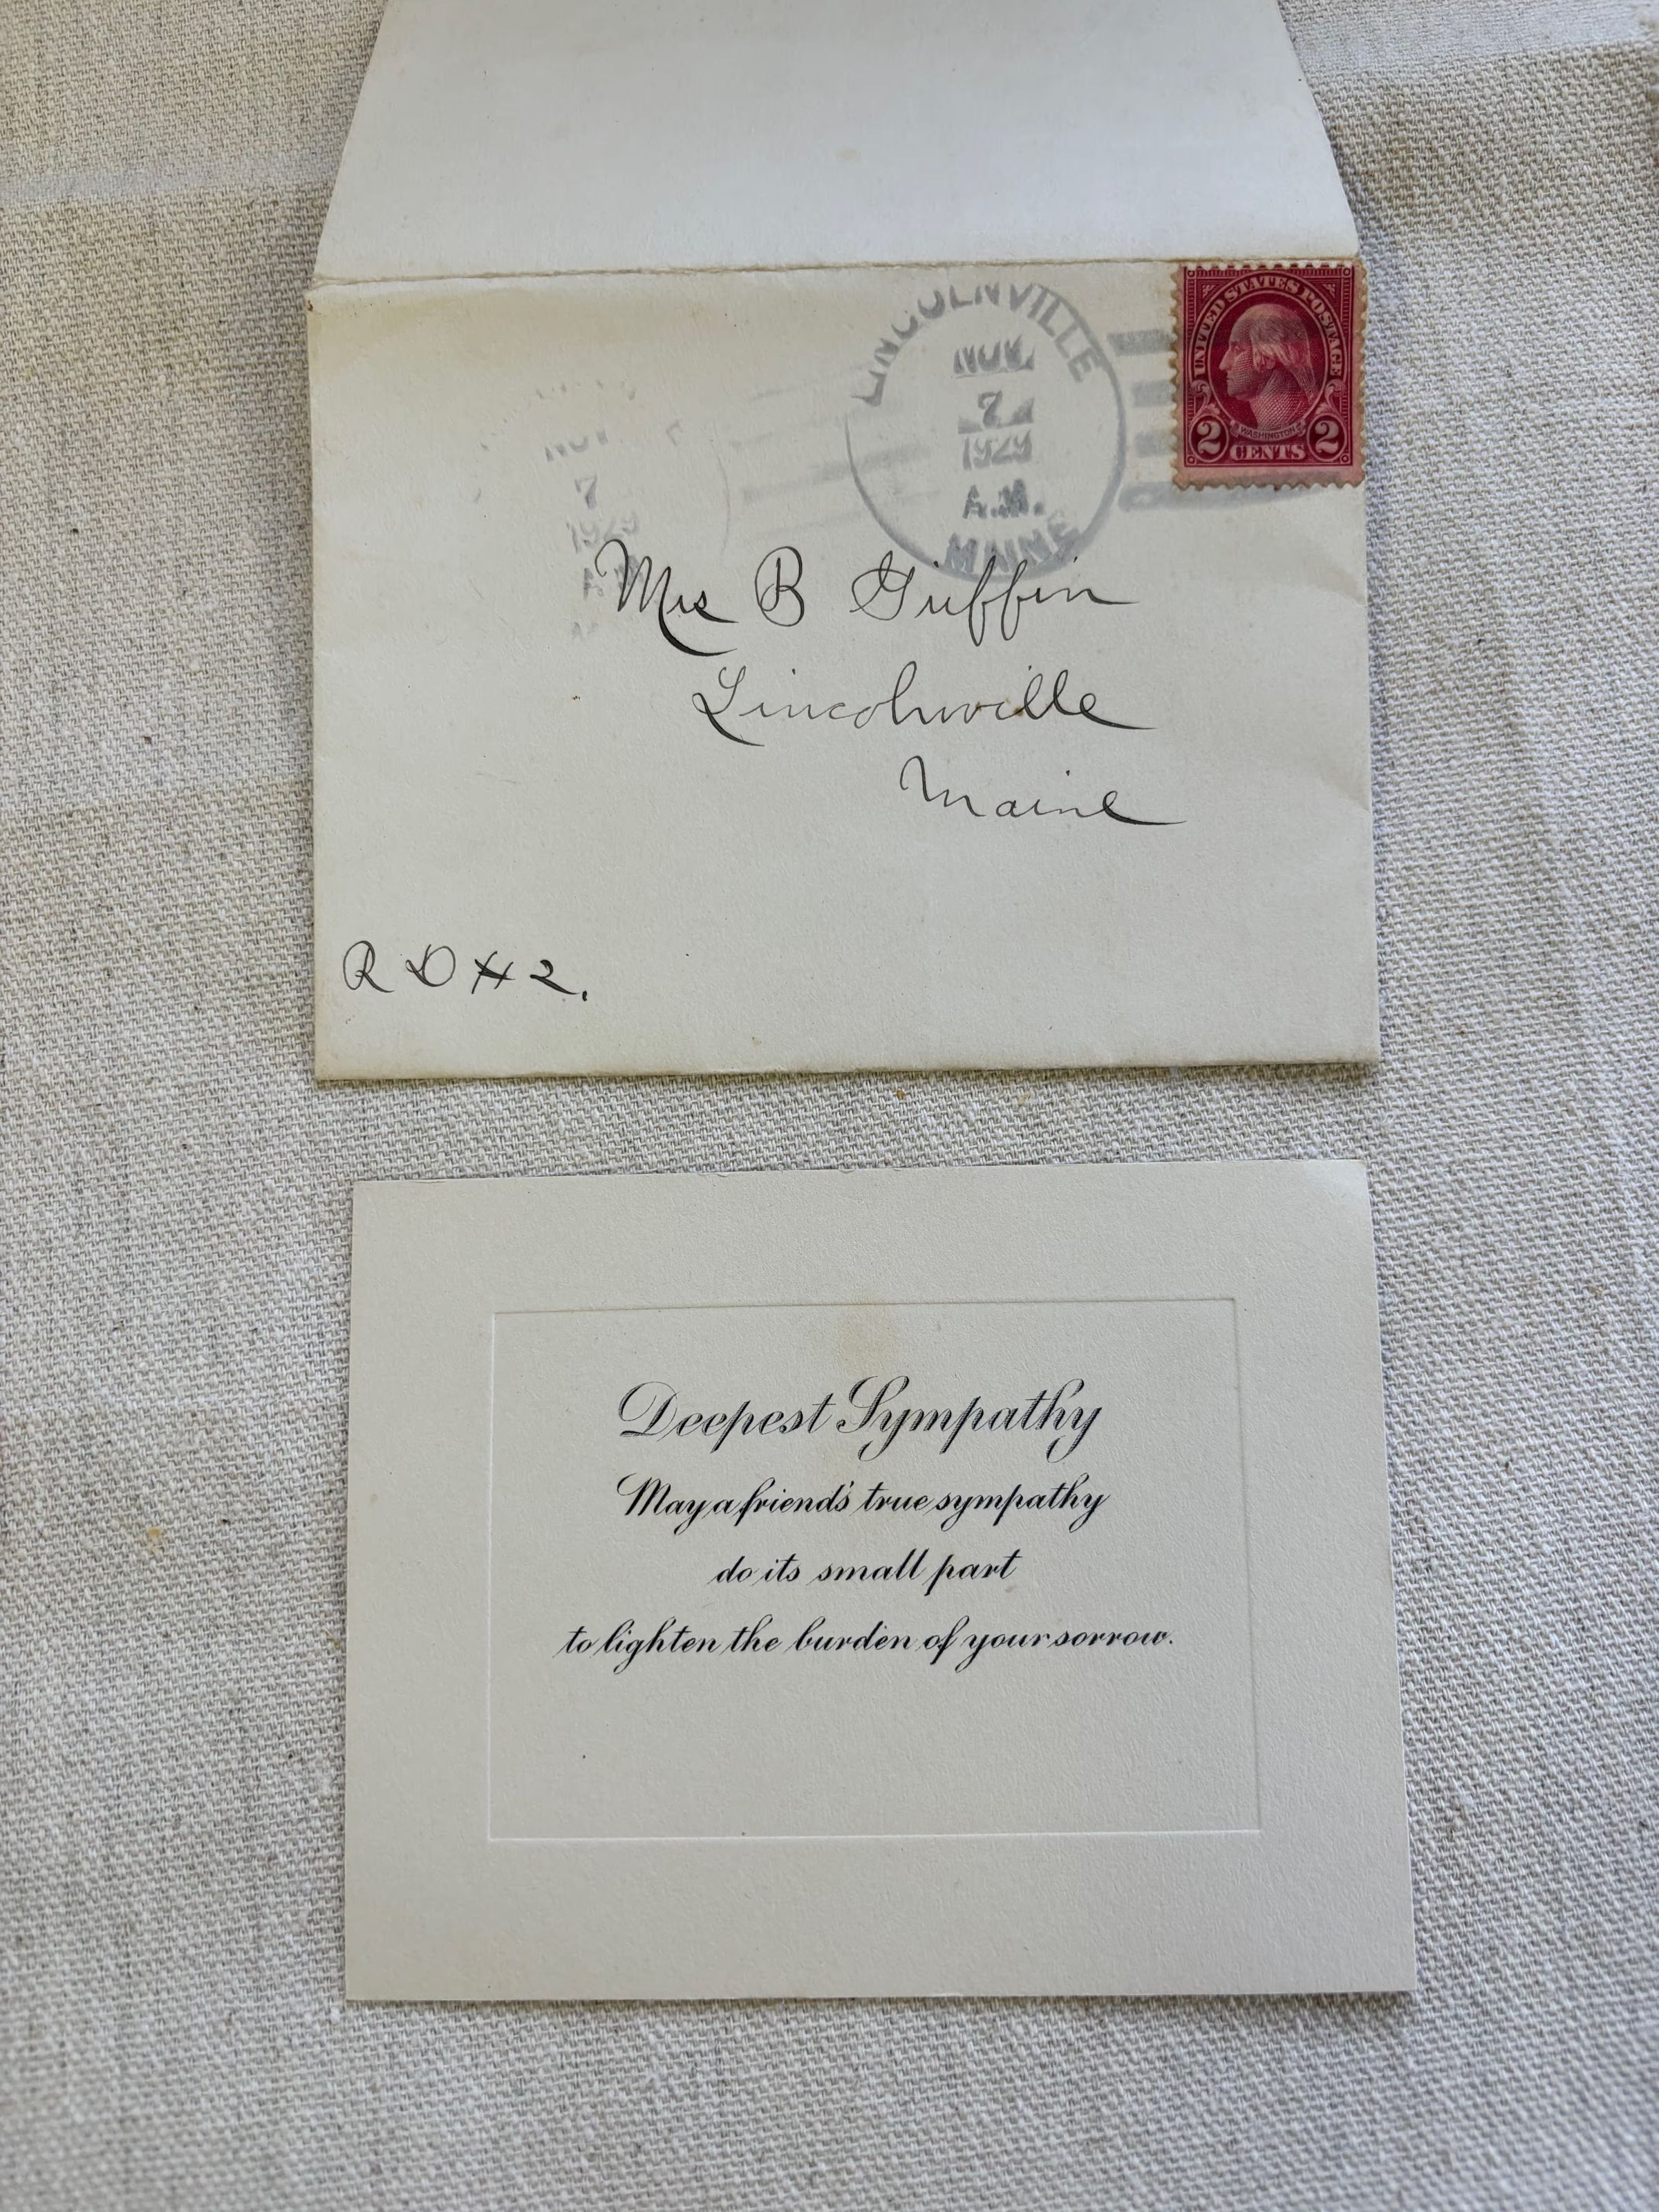 LINCOLNVILLE
NOV.
7
1929
A.M.
MAINE
UNITED STATES POSTAGE
WASHINGTON
2 CENTS 2
NOV
7
1929
Mrs B Griffin
Lincolnville
Maine
R D #2.
Deepest Sympathy
May a friend's true sympathy
do its small part
to lighten the burden of your sorrow.